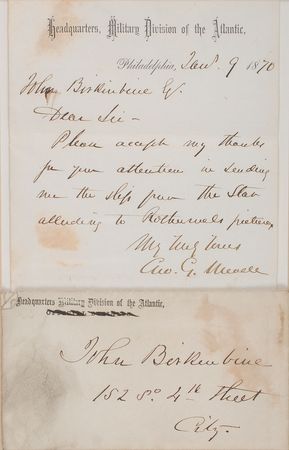 Headquarters, Military Division of the Atlantic,
Philadelphia, Jany. 9 1870
John Birkinbine Eq.
Dear Sir -
Please accept my thanks
for your attention in sending
me the slip from the Star
alluding to Rothermels picture,
Very truly yours
Geo. G. Meade
Headquarters Military Division of the Atlantic,
John Birkinbine
152 So. 4th Street
City.